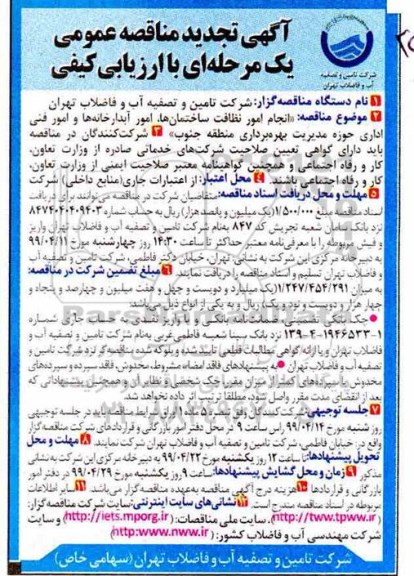 آگهی تجدید مناقصه عمومی
یک مرحله‌ای با ارزیابی کیفی
شرکت تامین و تصفیه
آب و فاضلاب تهران
1 نام دستگاه مناقصه‌گزار: شرکت تامین و تصفیه آب و فاضلاب تهران
2 موضوع مناقصه: «انجام امور نظافت ساختمان‌ها، امور آبدارخانه‌ها و امور فنی
اداری حوزه مدیریت بهره‌برداری منطقه جنوب» 3 شرکت‌کنندگان در مناقصه
باید دارای گواهی تعیین صلاحیت شرکت‌های خدماتی صادره از وزارت تعاون،
کار و رفاه اجتماعی و همچنین گواهینامه معتبر صلاحیت ایمنی از وزارت تعاون،
کار و رفاه اجتماعی باشند. 4 محل اعتبار: از اعتبارات جاری (منابع داخلی) شرکت
5 مهلت و محل دریافت اسناد مناقصه: متقاضیان شرکت در مناقصه می‌توانند برای دریافت
اسناد مبلغ 1/500/000 (یک میلیون و پانصد هزار) ریال به حساب شماره 8474040409403
نزد بانک سامان شعبه تجریش کد 847 به‌نام شرکت تامین و تصفیه آب و فاضلاب تهران واریز
و فیش مربوطه را با معرفی‌نامه معتبر حداکثر تا ساعت 14:30 روز چهارشنبه مورخ 99/04/11
به دبیرخانه مرکزی این شرکت به نشانی: تهران، خیابان دکتر فاطمی، شرکت تامین و تصفیه آب
و فاضلاب تهران تسلیم و اسناد مناقصه را دریافت نمایند. 6 مبلغ تضمین شرکت در مناقصه:
به میزان 1/247/454/291 (یک میلیارد و دویست و چهل و هفت میلیون و چهارصد و پنجاه و
چهار هزار و دویست و نود و یک) ریال و به یکی از انواع ذیل می‌باشد:
چک بانکی تضمینی، ضمانت‌نامه بانکی و یا واریز نقدی به حساب جاری شماره
139-4-1946533-1 نزد بانک سینا شعبه فاطمی غربی به‌نام شرکت تامین و تصفیه آب و
فاضلاب تهران و یا ارائه گواهی مطالبات قطعی تایید شده و بلوکه شده، مناقصه‌گر نزد شرکت تامین و
تصفیه آب و فاضلاب تهران • به پیشنهادهای فاقد امضاء، مشروط، مخدوش، فاقد سپرده و سپرده‌های
مخدوش یا سپرده‌های کمتر از میزان مقرر، چک شخصی و نظایر آن و همچنین پیشنهاداتی که
بعد از انقضای مدت مقرر واصل شود، مطلقا ترتیب اثر داده نخواهد شد.
7 جلسه توجیهی: شرکت‌کنندگان شرایط مناقصه باید در جلسه توجیهی
روز شنبه مورخ 99/04/14 راس ساعت 9 در محل دفتر امور بازرگانی و قراردادهای شرکت
واقع در: خیابان فاطمی، شرکت تامین و تصفیه آب و فاضلاب تهران شرکت نمایند. 8 مهلت و محل
تحویل پیشنهادها: تا ساعت 12 روز یکشنبه مورخ 99/04/22 به دبیرخانه مرکزی این شرکت به نشانی
مذکور 9 زمان و محل گشایش پیشنهادها: ساعت 9 روز یکشنبه مورخ 99/04/29 در دفتر امور
بازرگانی و قراردادها 10 هزینه درج آگهی مناقصه به‌عهده مناقصه‌گزار می‌باشد. 11 سایر اطلاعات
مربوطه در اسناد مناقصه مندرج است. 12 نشانی‌های سایت اینترنتی: سایت شرکت مناقصه‌گزار:
(http://tww.tpww.ir)، سایت ملی مناقصات: (http://iets.mporg.ir) و سایت
شرکت مهندسی آب و فاضلاب کشور: (http:www.nww.ir)
شرکت تامین و تصفیه آب و فاضلاب تهران (سهامی خاص)